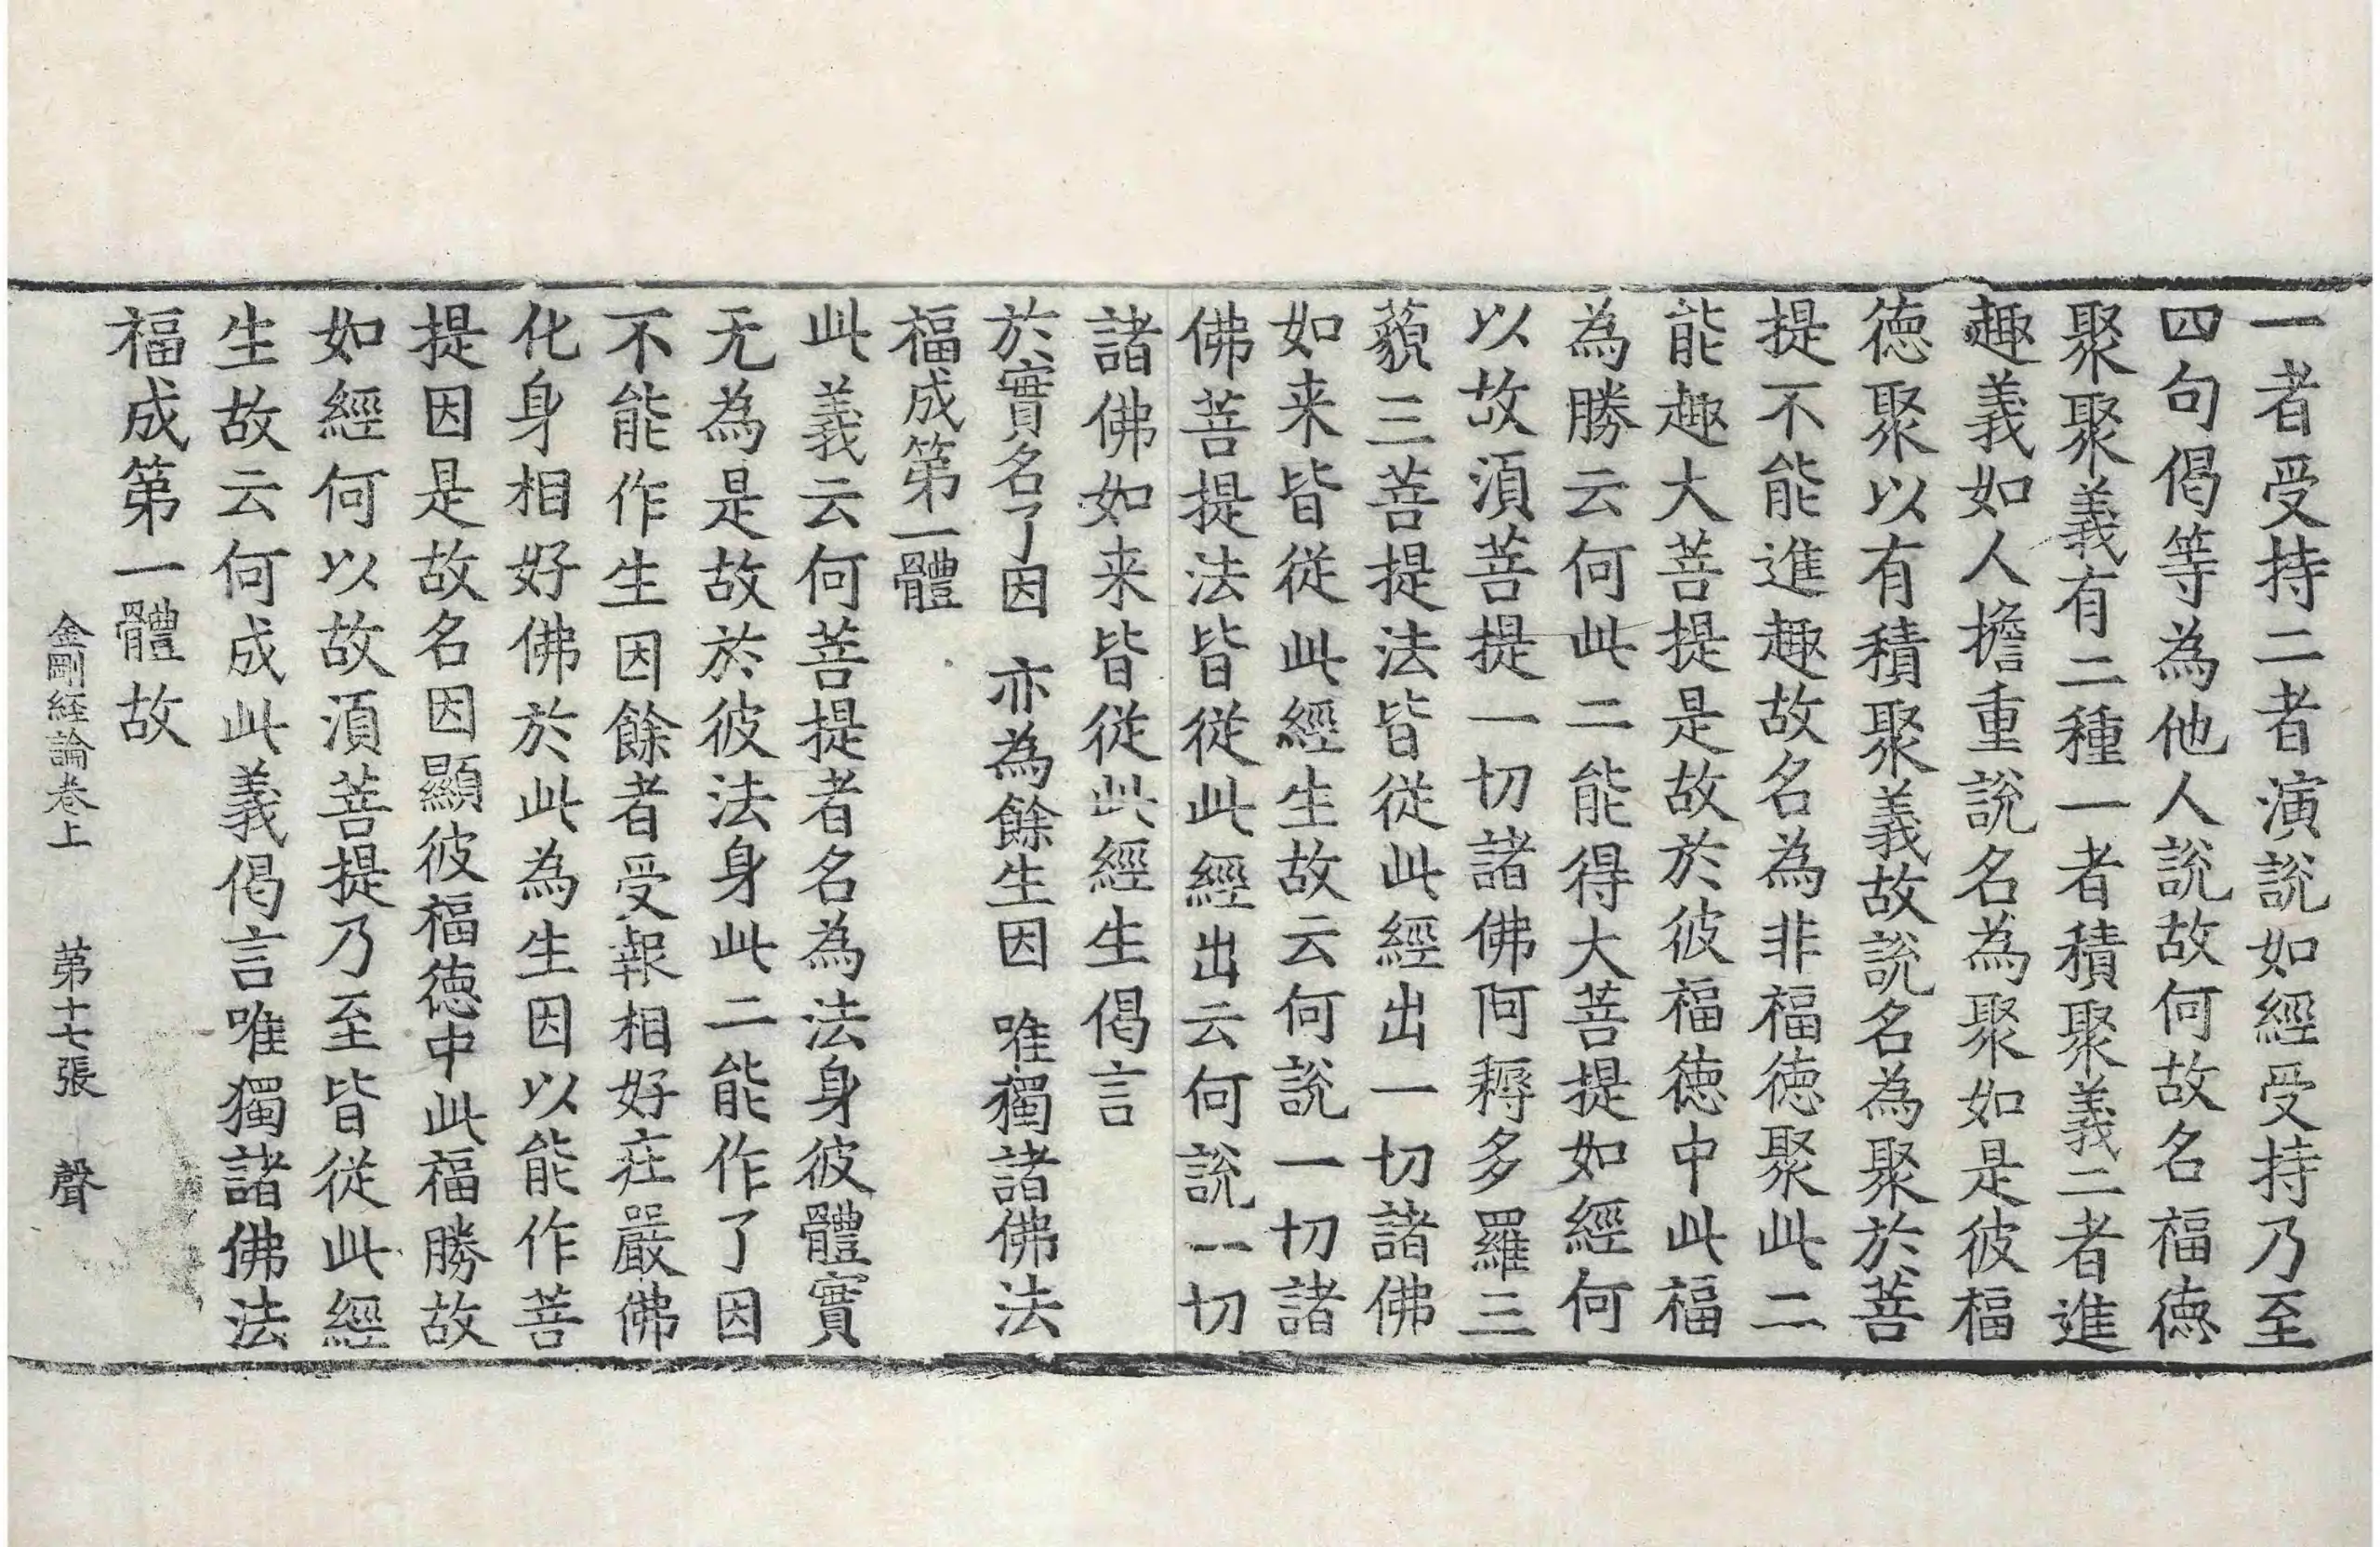 一者受持二者演說如經受持乃至
四句偈等為他人說故何故名福德
聚聚義有二種一者積聚義二者進
趣義如人擔重說名為聚如是彼福
德聚以有積聚義故說名為聚於菩
提不能進趣故名為非福德聚此二
能趣大菩提是故於彼福德中此福
為勝云何此二能得大菩提如經何
以故湏菩提一切諸佛阿耨多羅三
藐三菩提法皆從此經出一切諸佛
如来皆從此經生故云何說一切諸
佛菩提法皆從此經出云何說一切
諸佛如来皆從此經生偈言
於實名了因　亦為餘生因　唯獨諸佛法
福成第一體
此義云何菩提者名為法身彼體實
无為是故於彼法身此二能作了因
不能作生因餘者受報相好莊嚴佛
化身相好佛於此為生因以能作菩
提因是故名因顯彼福德中此福勝故
如經何以故湏菩提乃至皆從此經
生故云何成此義偈言唯獨諸佛法
福成第一體故
金剛経論卷上　第十七張　聲